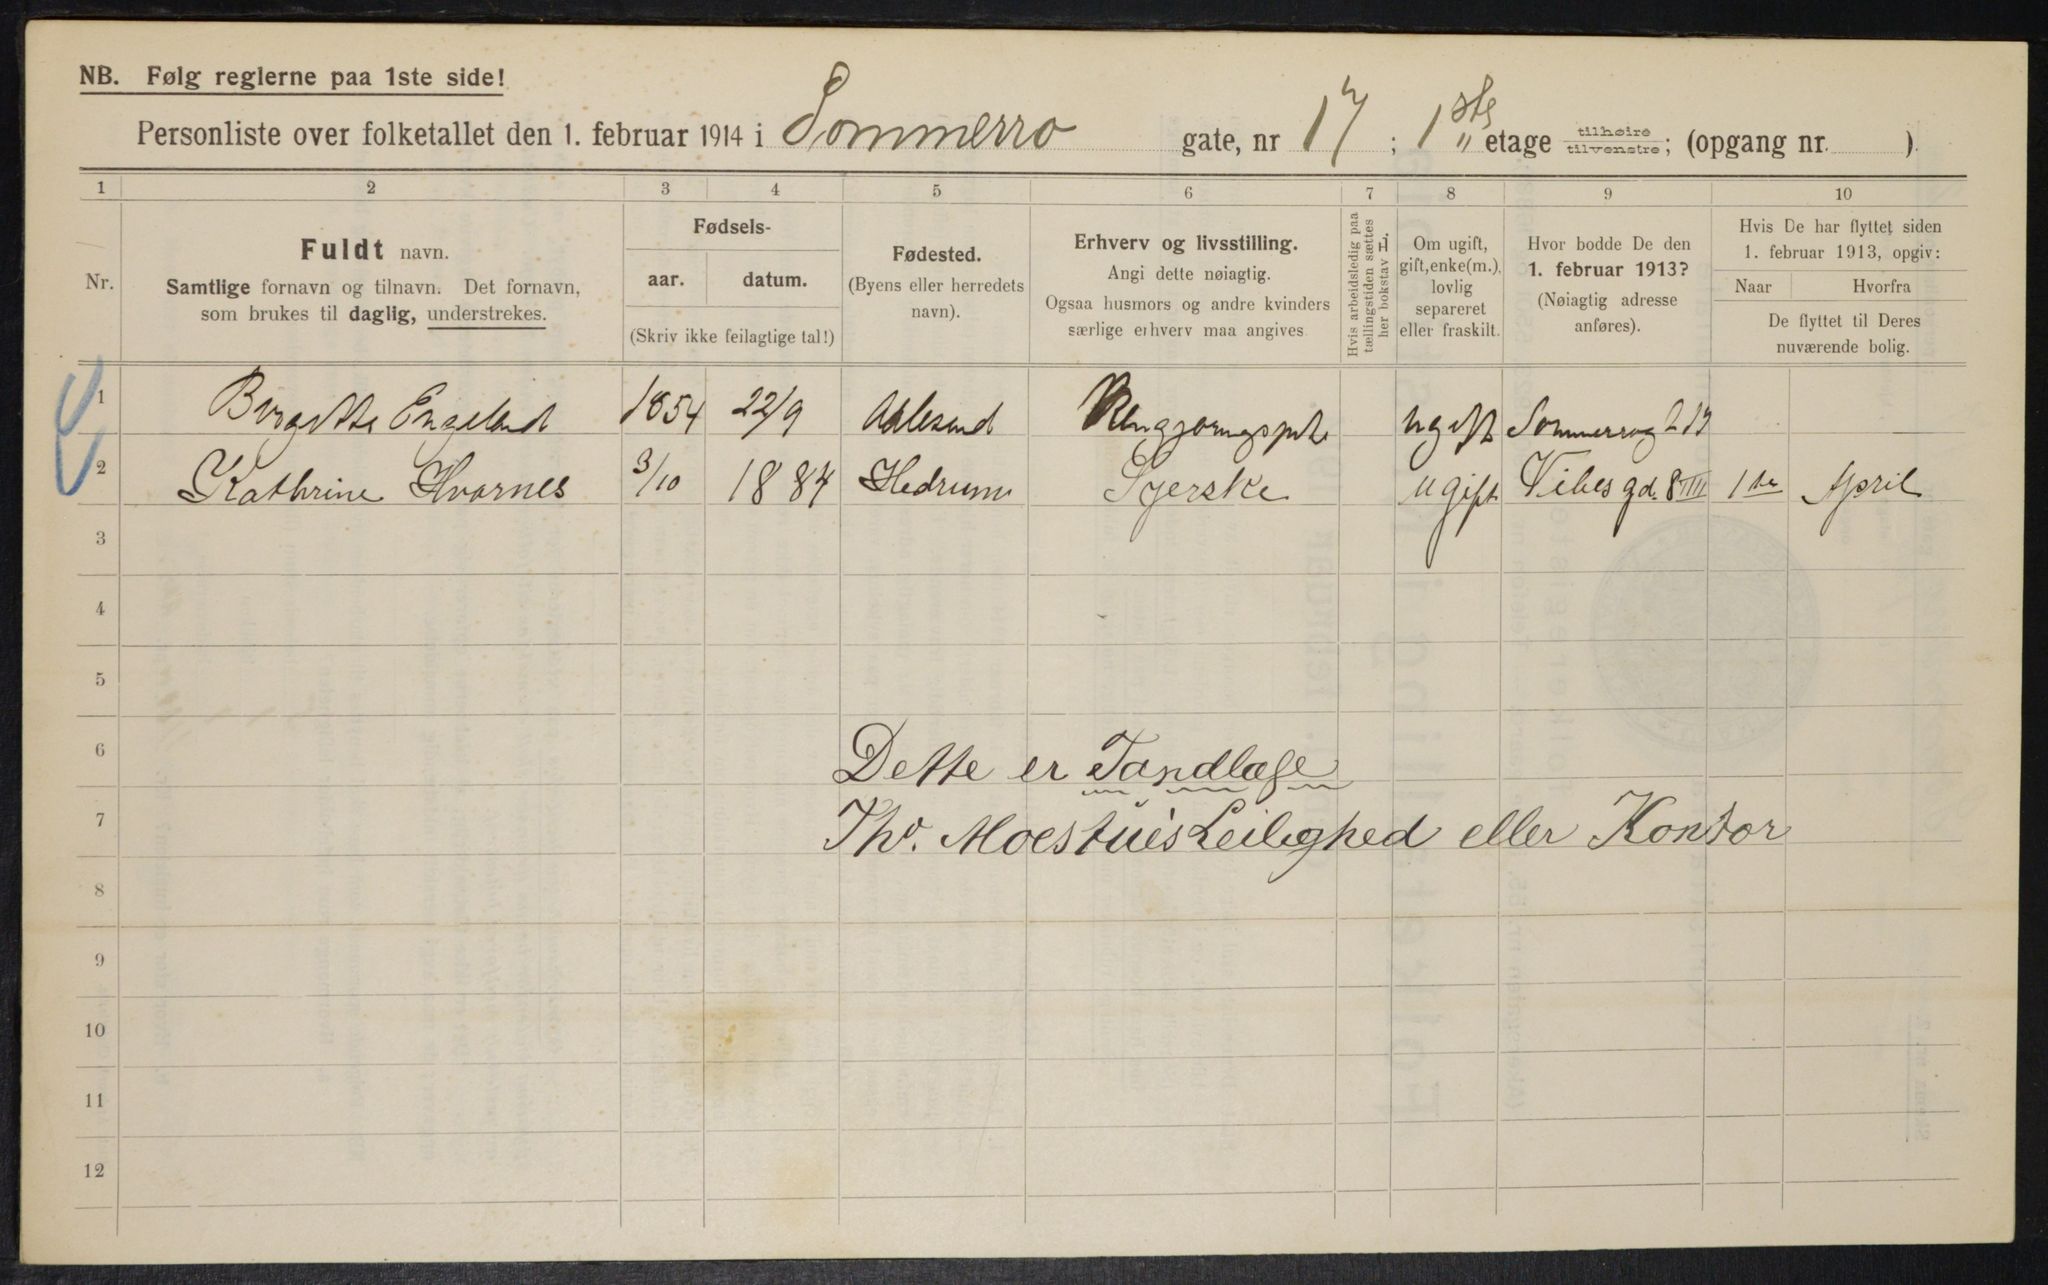 NB. Følg reglerne paa 1ste side!
Personliste over folketallet den 1. februar 1914 i Sommerro gate, nr 17 ; 1ste etage tilhøire tilvenstre; (opgang nr. ).
1 2 3 4 5 6 7 8 9 10
Nr.
Fuldt navn.
Samtlige fornavn og tilnavn. Det fornavn,
som brukes til daglig, understrekes.
Fødsels-
aar. datum.
(Skriv ikke feilagtige tal!)
Fødested.
(Byens eller herredets
navn).
Erhverv og livsstilling.
Angi dette nøiagtig.
Ogsaa husmors og andre kvinders
særlige erhverv maa angives
Hvis arbeidsledig paa
tællingstiden sættes
her bokstav L.
Om ugift,
gift, enke(m.),
lovlig
separeret
eller fraskilt.
Hvor bodde De den
1. februar 1913?
(Nøiagtig adresse
anføres).
Hvis De har flyttet siden
1. februar 1913, opgiv:
Naar Hvorfra
De flyttet til Deres
nuværende bolig.
1 Birgitte Engeland 1854 22/9 Aalesund ugift Sommerrog 17
2 Kathrine Hvarnes 3/10 1884 Hedrum Syerske ugift Vibes gd. 8 III 1ste April
3
4
5
6 Dette er Tandlæge
7 Thv. Moestue's Leilighed eller Kontor
8
9
10
11
12